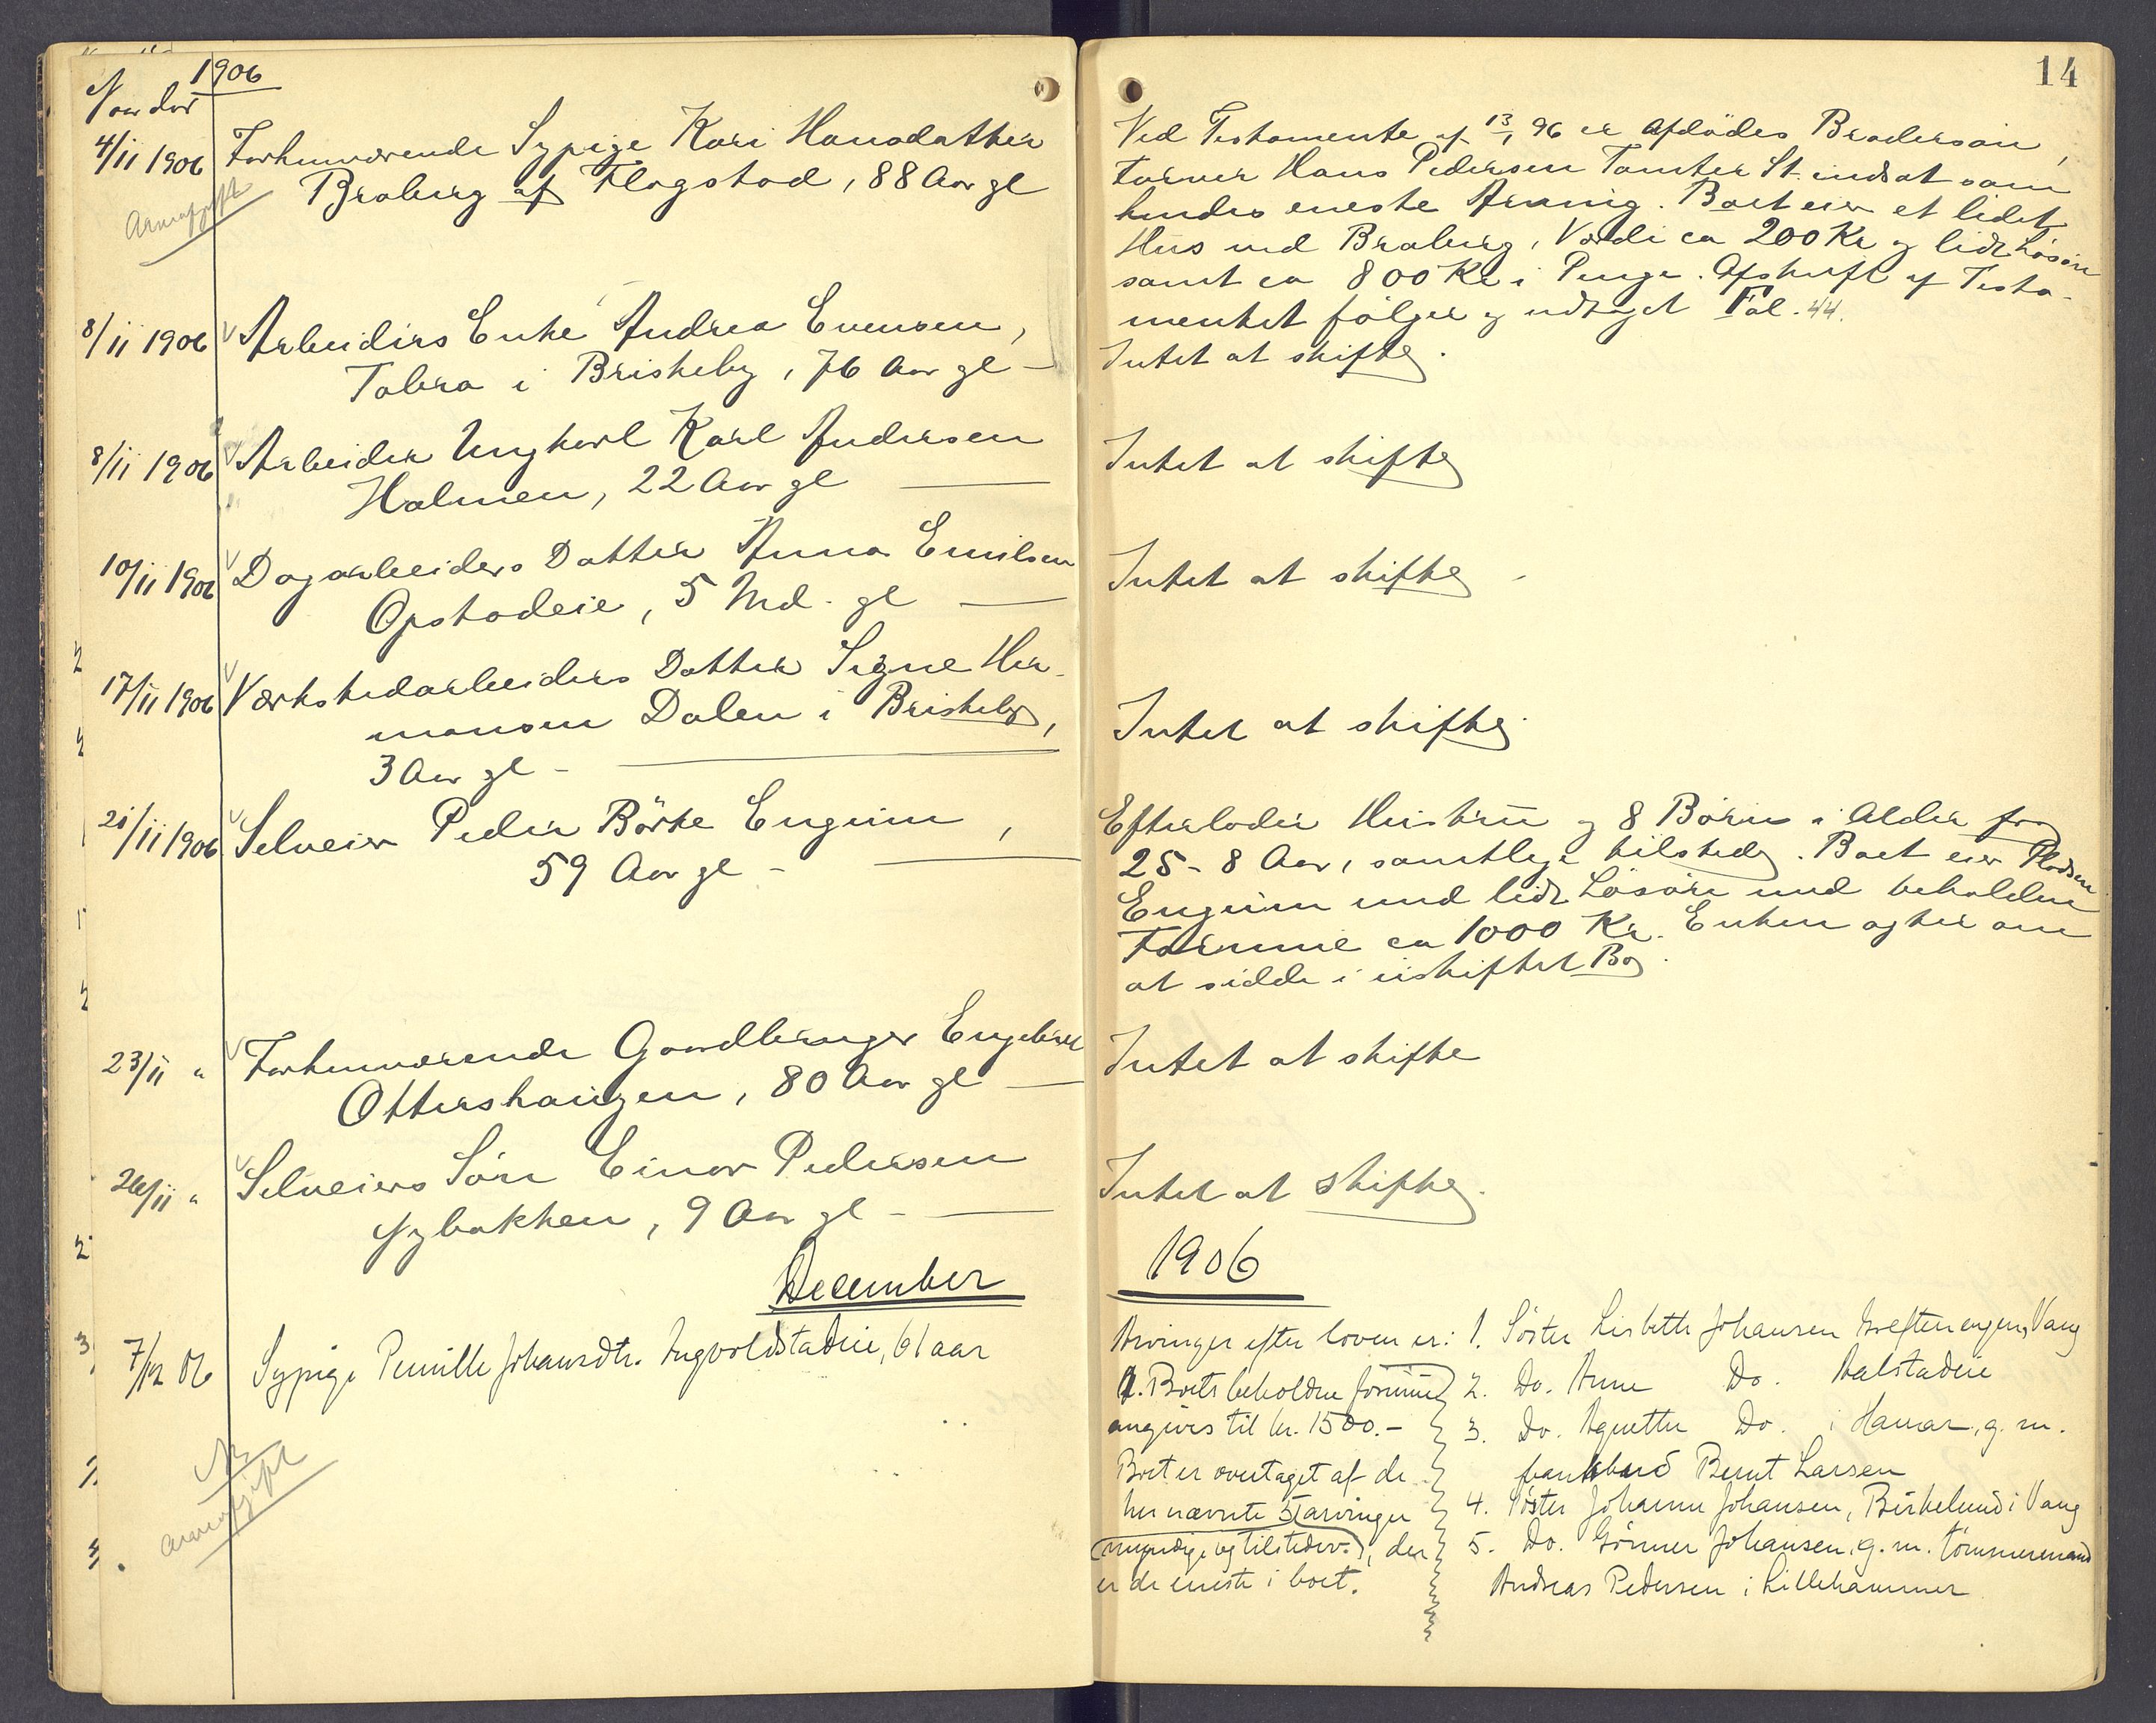 1906
4/11 1906 Forhenværende Sypige Kari Hansdatter
Braberg af Flagstad, 88 Aar gl
Arveafgift
8/11 1906 Arbeiders Enke Andrea Evensen,
Tabra i Briskeby, 76 Aar gl -
8/11 1906 Arbeider Ungkarl Karl Andersen
Holmen, 22 Aar gl
10/11 1906 Dagarbeiders Datter Anna Emilsen
Opstadeie, 5 Md. gl
17/11 1906 Værkstedarbeiders Datter Signe Her-
mansen Dalen i Briskeby,
3 Aar gl -
21/11 1906 Selveier Peder Börke Enguim,
59 Aar gl -
23/11 " Forhenværende Gaardbruger Engebret
Ottershaugen, 80 Aar gl
26/11 " Selveiers Sön Einar Pedersen
Nybakken, 9 Aar gl -
December
7/12 06 Sypige Pernille Johansdtr. Ingvoldstadeie, 61 aar
Arveafgift
14
Ved Testamente af 13/1 96 er Afdödes Brodersön,
Hans Pedersen Tomter St. indsat som
hendes eneste Arving. Boet eier et lidet
Hus ved Braberg, Værdi ca 200 Kr og lidt Lösöre
samt ca 800 Kr i Penge. Afskrift af Testa-
mentet fölger og udtaget Fol. 44.
Intet at skifte.
Intet at skifte
Intet at skifte -
Intet at skifte.
Efterlader Hustru og 8 Börn i Alder fra
25 - 8 Aar, samtlige tilstede. Boet eier Pladsen
Enguim med lidt Lösöre med beholden
Formue ca 1000 Kr. Enken agter om
at sidde i uskiftet Bo.
Intet at skifte
Intet at skifte.
1906
Arvinger efter loven er: 1. Söster Lisbeth Johansen Vang
Boets beholdne formue 2. Do. Anne Do. Aalstadeie
angives til kr. 1500.- 3. Do. Agnette Do. i Hamar, g. m.
Boet er overtaget af de Bernt Larsen
her nævnte 5 arvinger 4. Söster Johanne Johansen, Birkelund i Vang
(myndige og tilstede), der 5. Do. Gönner Johansen, g. m. tömmermand
er de eneste i boet. Andreas Pedersen i Lillehammer